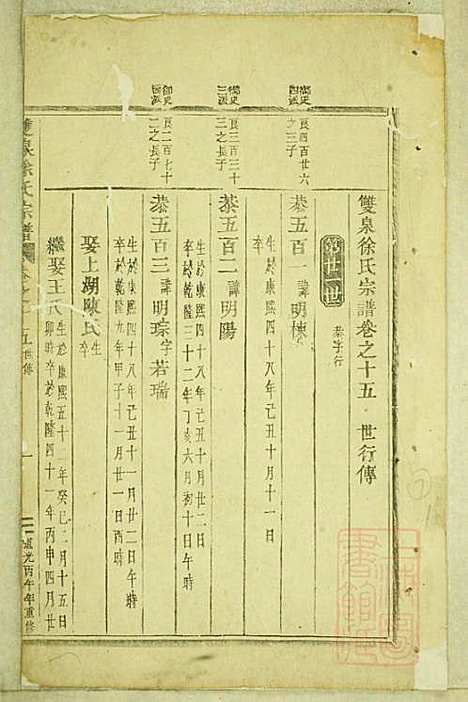 雙泉徐氏宗譜卷之十五 世行傳
第廿二世 恭字行
御史四派
良四百廿六
之三子
恭五百一諱明棟
生於康熙四十八年己丑十月十一日
卒
御史三派
良二百三十
二之長子
恭五百二諱明陽
生於康熙四十八年己丑十月廿二日
卒於乾隆三十二年丁亥六月初十日午時
御史派
良二百七十
二之長子
恭五百三諱明琮字若瑞
生於康熙四十八年己丑十一月廿二日午時
卒於乾隆九年甲子十一月廿一日酉時
娶上湖陳氏生
卒
繼娶王氏生於康熙五十二年癸巳二月十五日
卯時卒於乾隆四十一年丙申四月廿
雙泉徐氏宗譜
卷之十五 世傳
一
道光丙午年重修